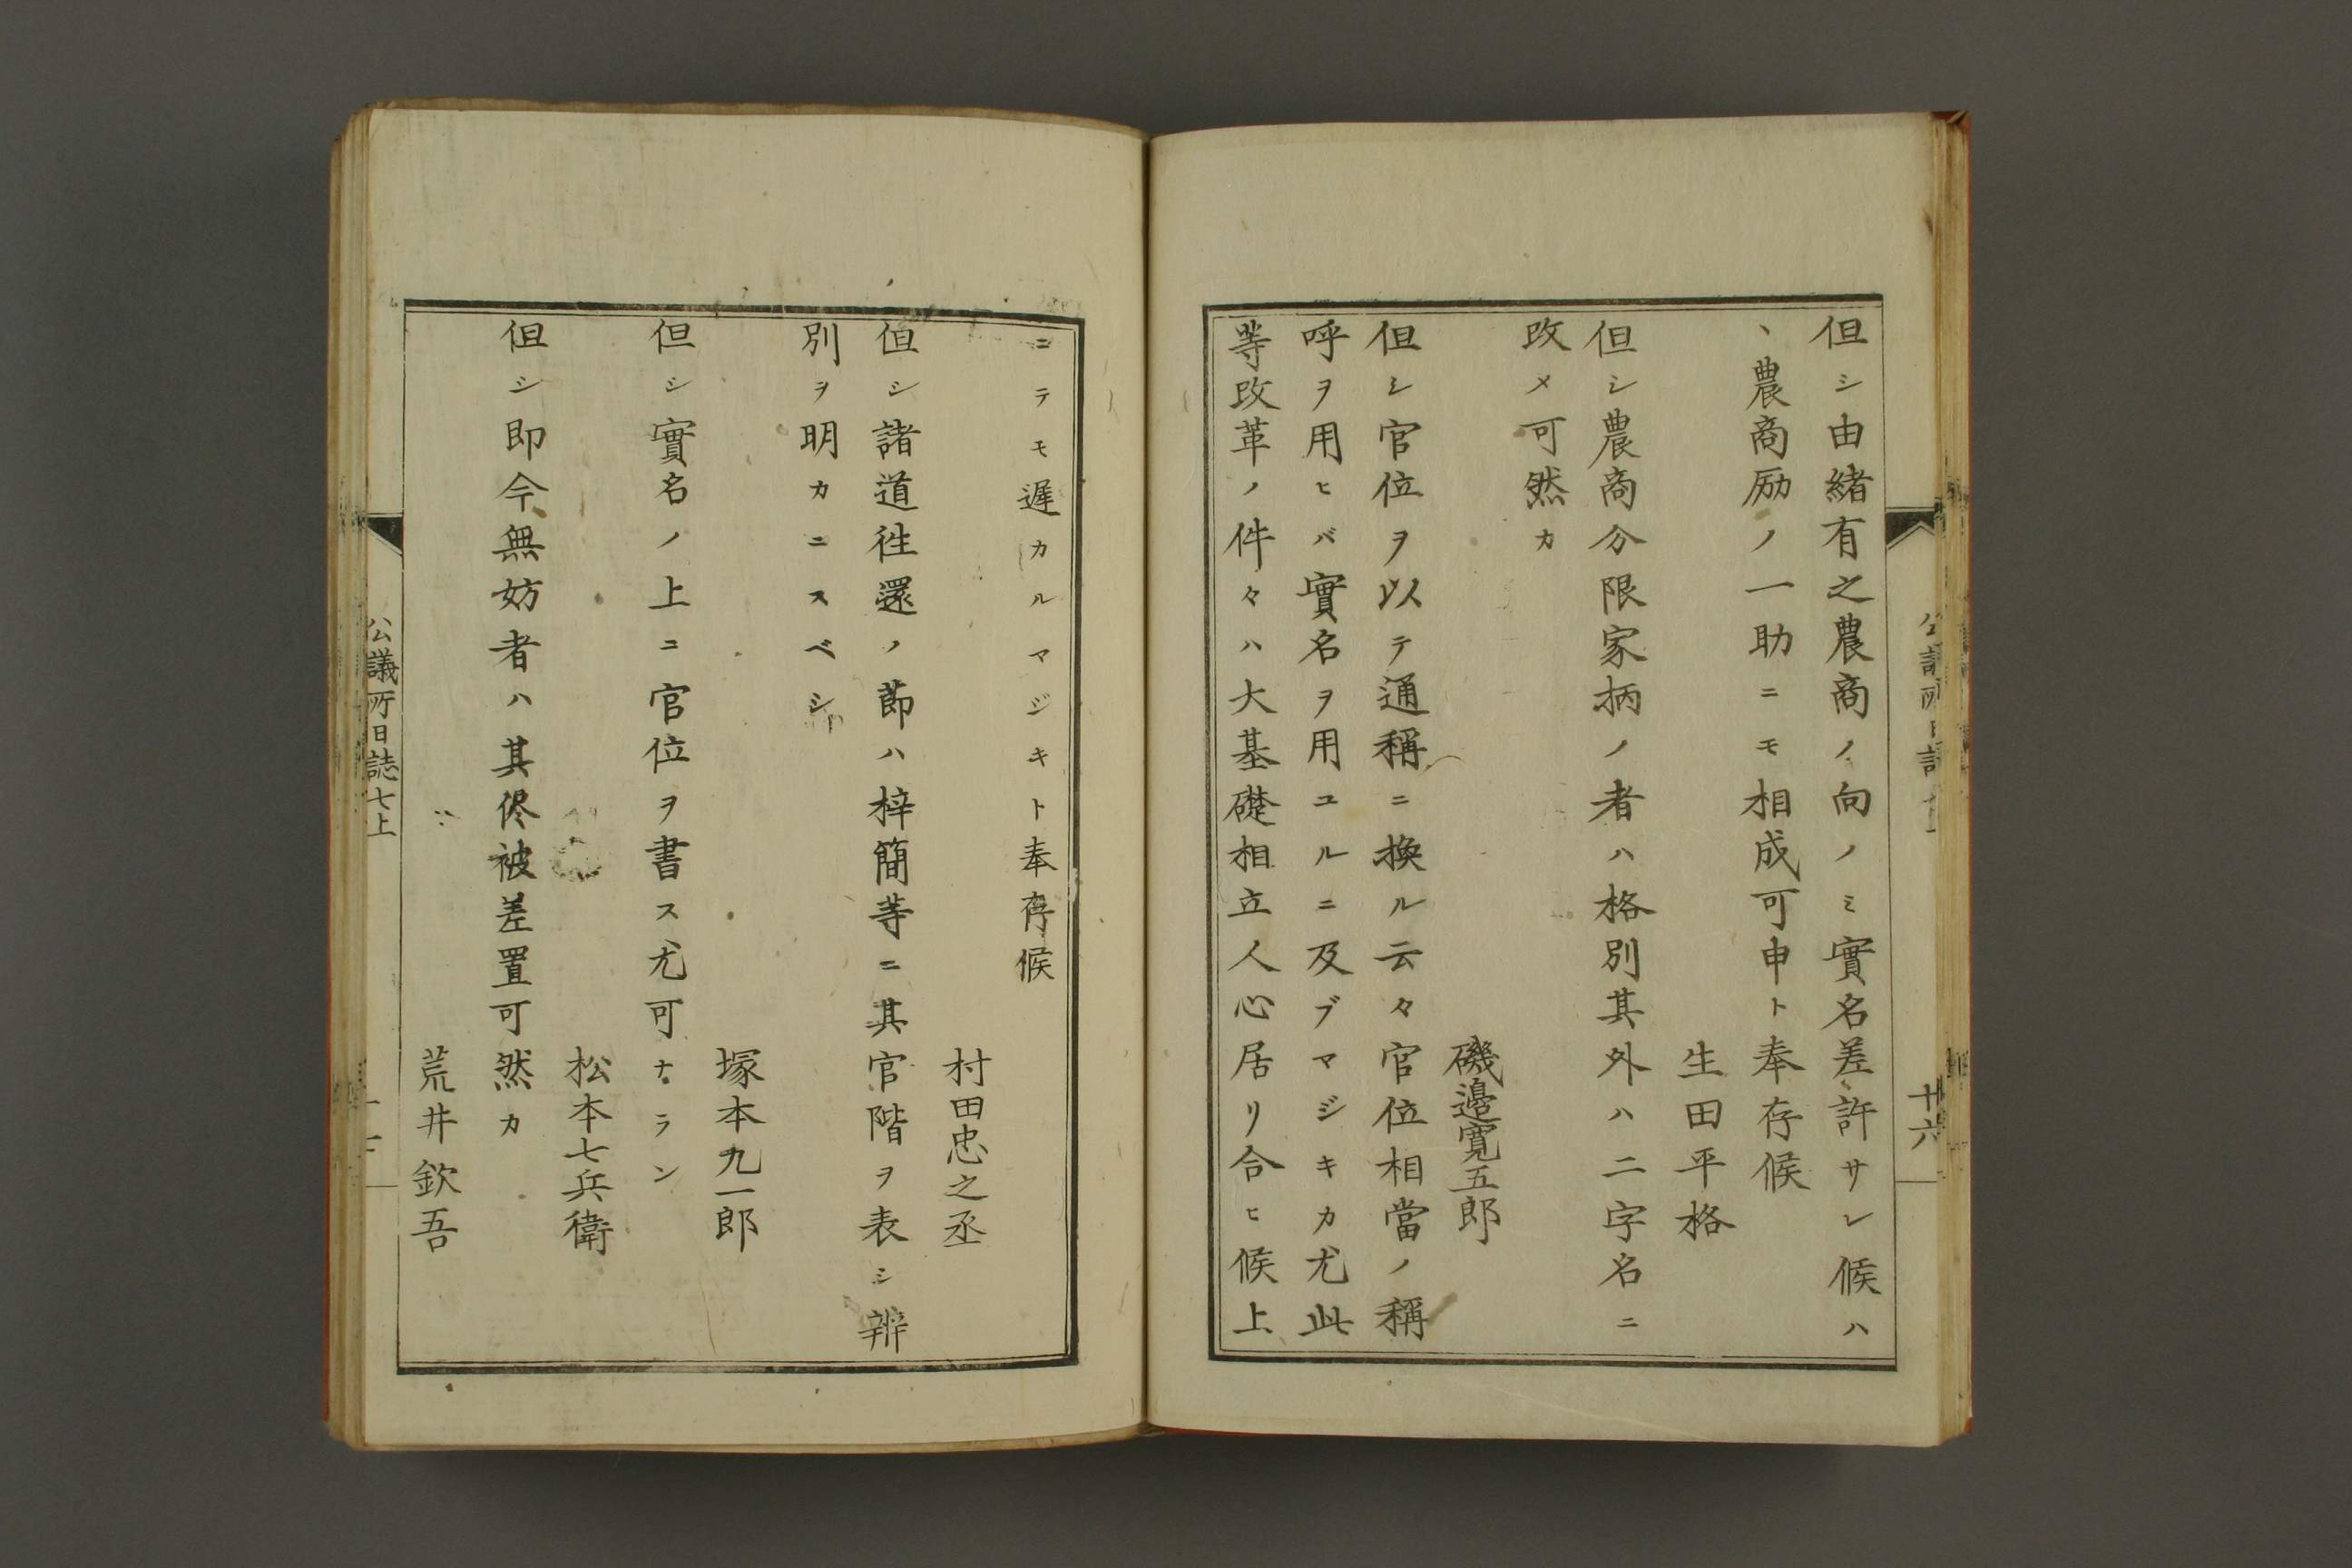 但シ由緒有之農商ノ向ノミ實名差許サレ候ハ
、農商励ノ一助ニモ相成可申ト奉存候
生田平格
但シ農商分限家柄ノ者ハ格別其外ハ二字名ニ
改メ可然カ
磯邉寛五郎
但シ官位ヲ以テ通稱ニ換ル云々官位相當ノ稱
呼ヲ用ヒバ實名ヲ用ユルニ及ブマジキカ尤此
等改革ノ件々ハ大基礎相立人心居リ合ヒ候上
十六
ニテモ遅カルマジキト奉存候
村田忠之丞
但シ諸道徃還ノ節ハ梓簡等ニ其官階ヲ表シ辨
別ヲ明カニスベシ
塚本九一郎
但シ實名ノ上ニ官位ヲ書ス尤可ナラン
松本七兵衛
但シ即今無妨者ハ其侭被差置可然カ
荒井欽吾
公議所日誌七上